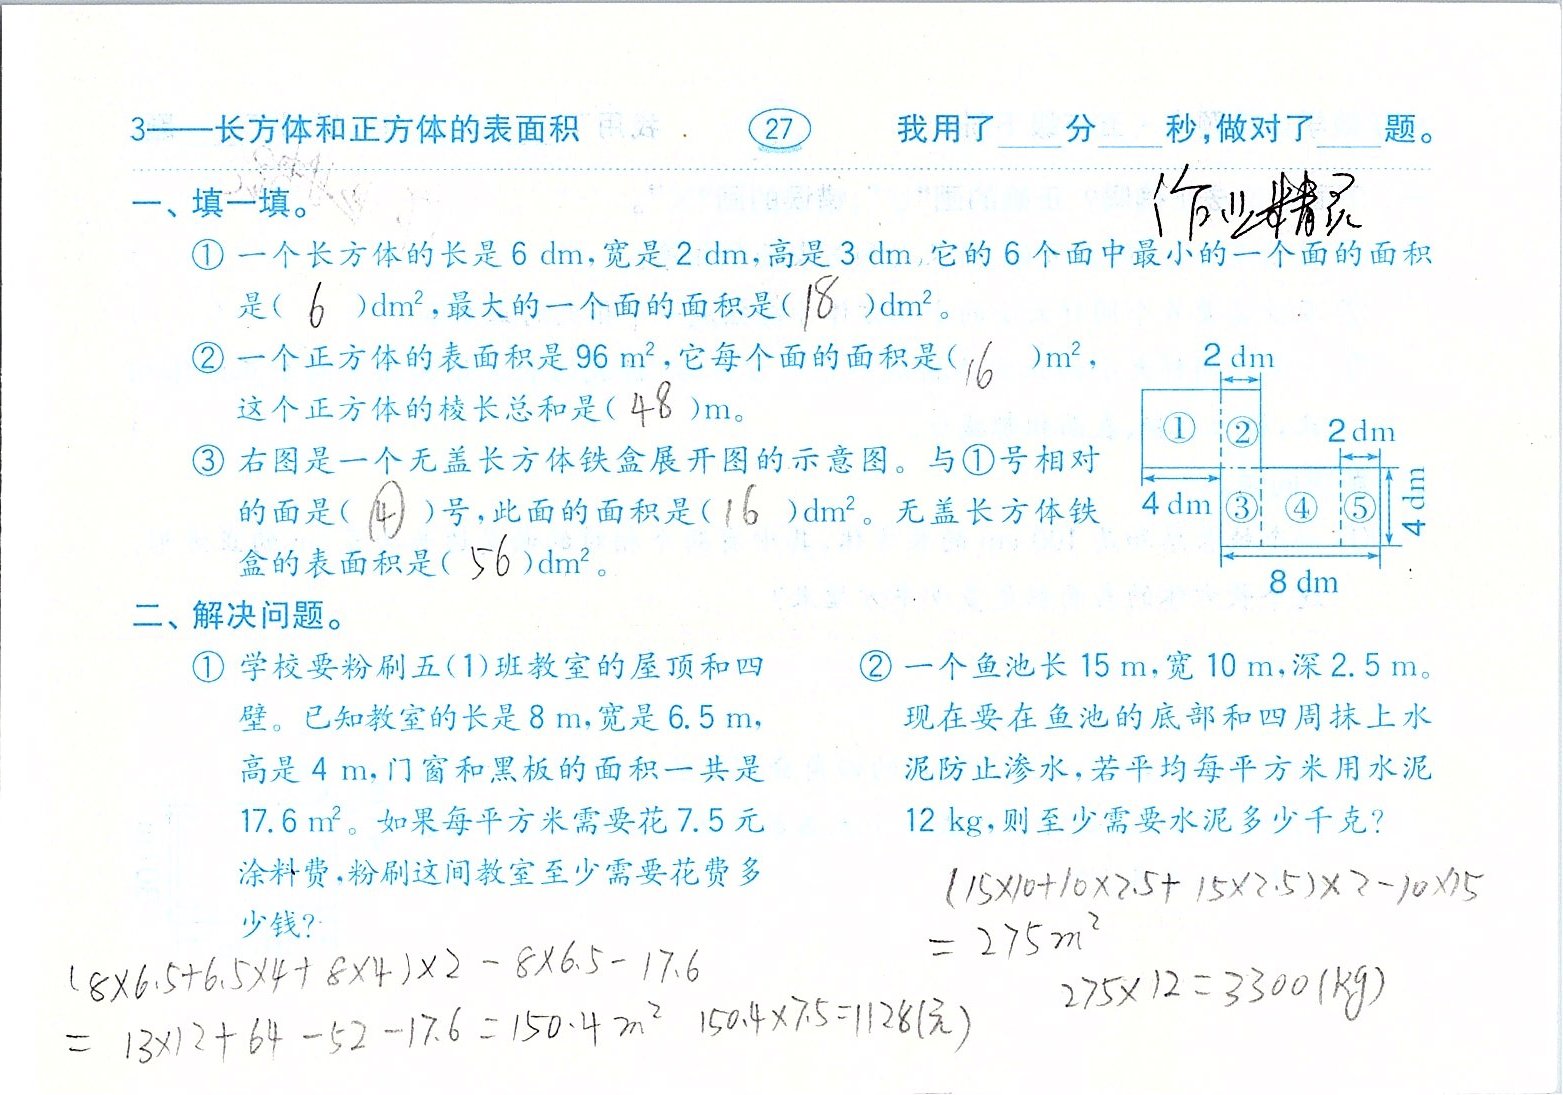 3——长方体和正方体的表面积 27 我用了____分____秒,做对了____题。
作业精灵
一、填一填。
① 一个长方体的长是6 dm,宽是2 dm,高是3 dm,它的6个面中最小的一个面的面积
是( 6 )dm²,最大的一个面的面积是( 18 )dm²。
② 一个正方体的表面积是96 m²,它每个面的面积是( 16 )m²,
这个正方体的棱长总和是( 48 )m。
③ 右图是一个无盖长方体铁盒展开图的示意图。与①号相对
的面是( ④ )号,此面的面积是( 16 )dm²。无盖长方体铁
盒的表面积是( 56 )dm²。
2 dm
① ② 2 dm
4 dm ③ ④ ⑤ 4 dm
8 dm
二、解决问题。
① 学校要粉刷五(1)班教室的屋顶和四
壁。已知教室的长是8 m,宽是6.5 m,
高是4 m,门窗和黑板的面积一共是
17.6 m²。如果每平方米需要花7.5元
涂料费,粉刷这间教室至少需要花费多
少钱?
(8×6.5+6.5×4+8×4)×2-8×6.5-17.6
=13×12+64-52-17.6=150.4m² 150.4×7.5=1128(元)
② 一个鱼池长15 m,宽10 m,深2.5 m。
现在要在鱼池的底部和四周抹上水
泥防止渗水,若平均每平方米用水泥
12 kg,则至少需要水泥多少千克?
(15×10+10×2.5+15×2.5)×2-10×15
=275m²
275×12=3300(kg)